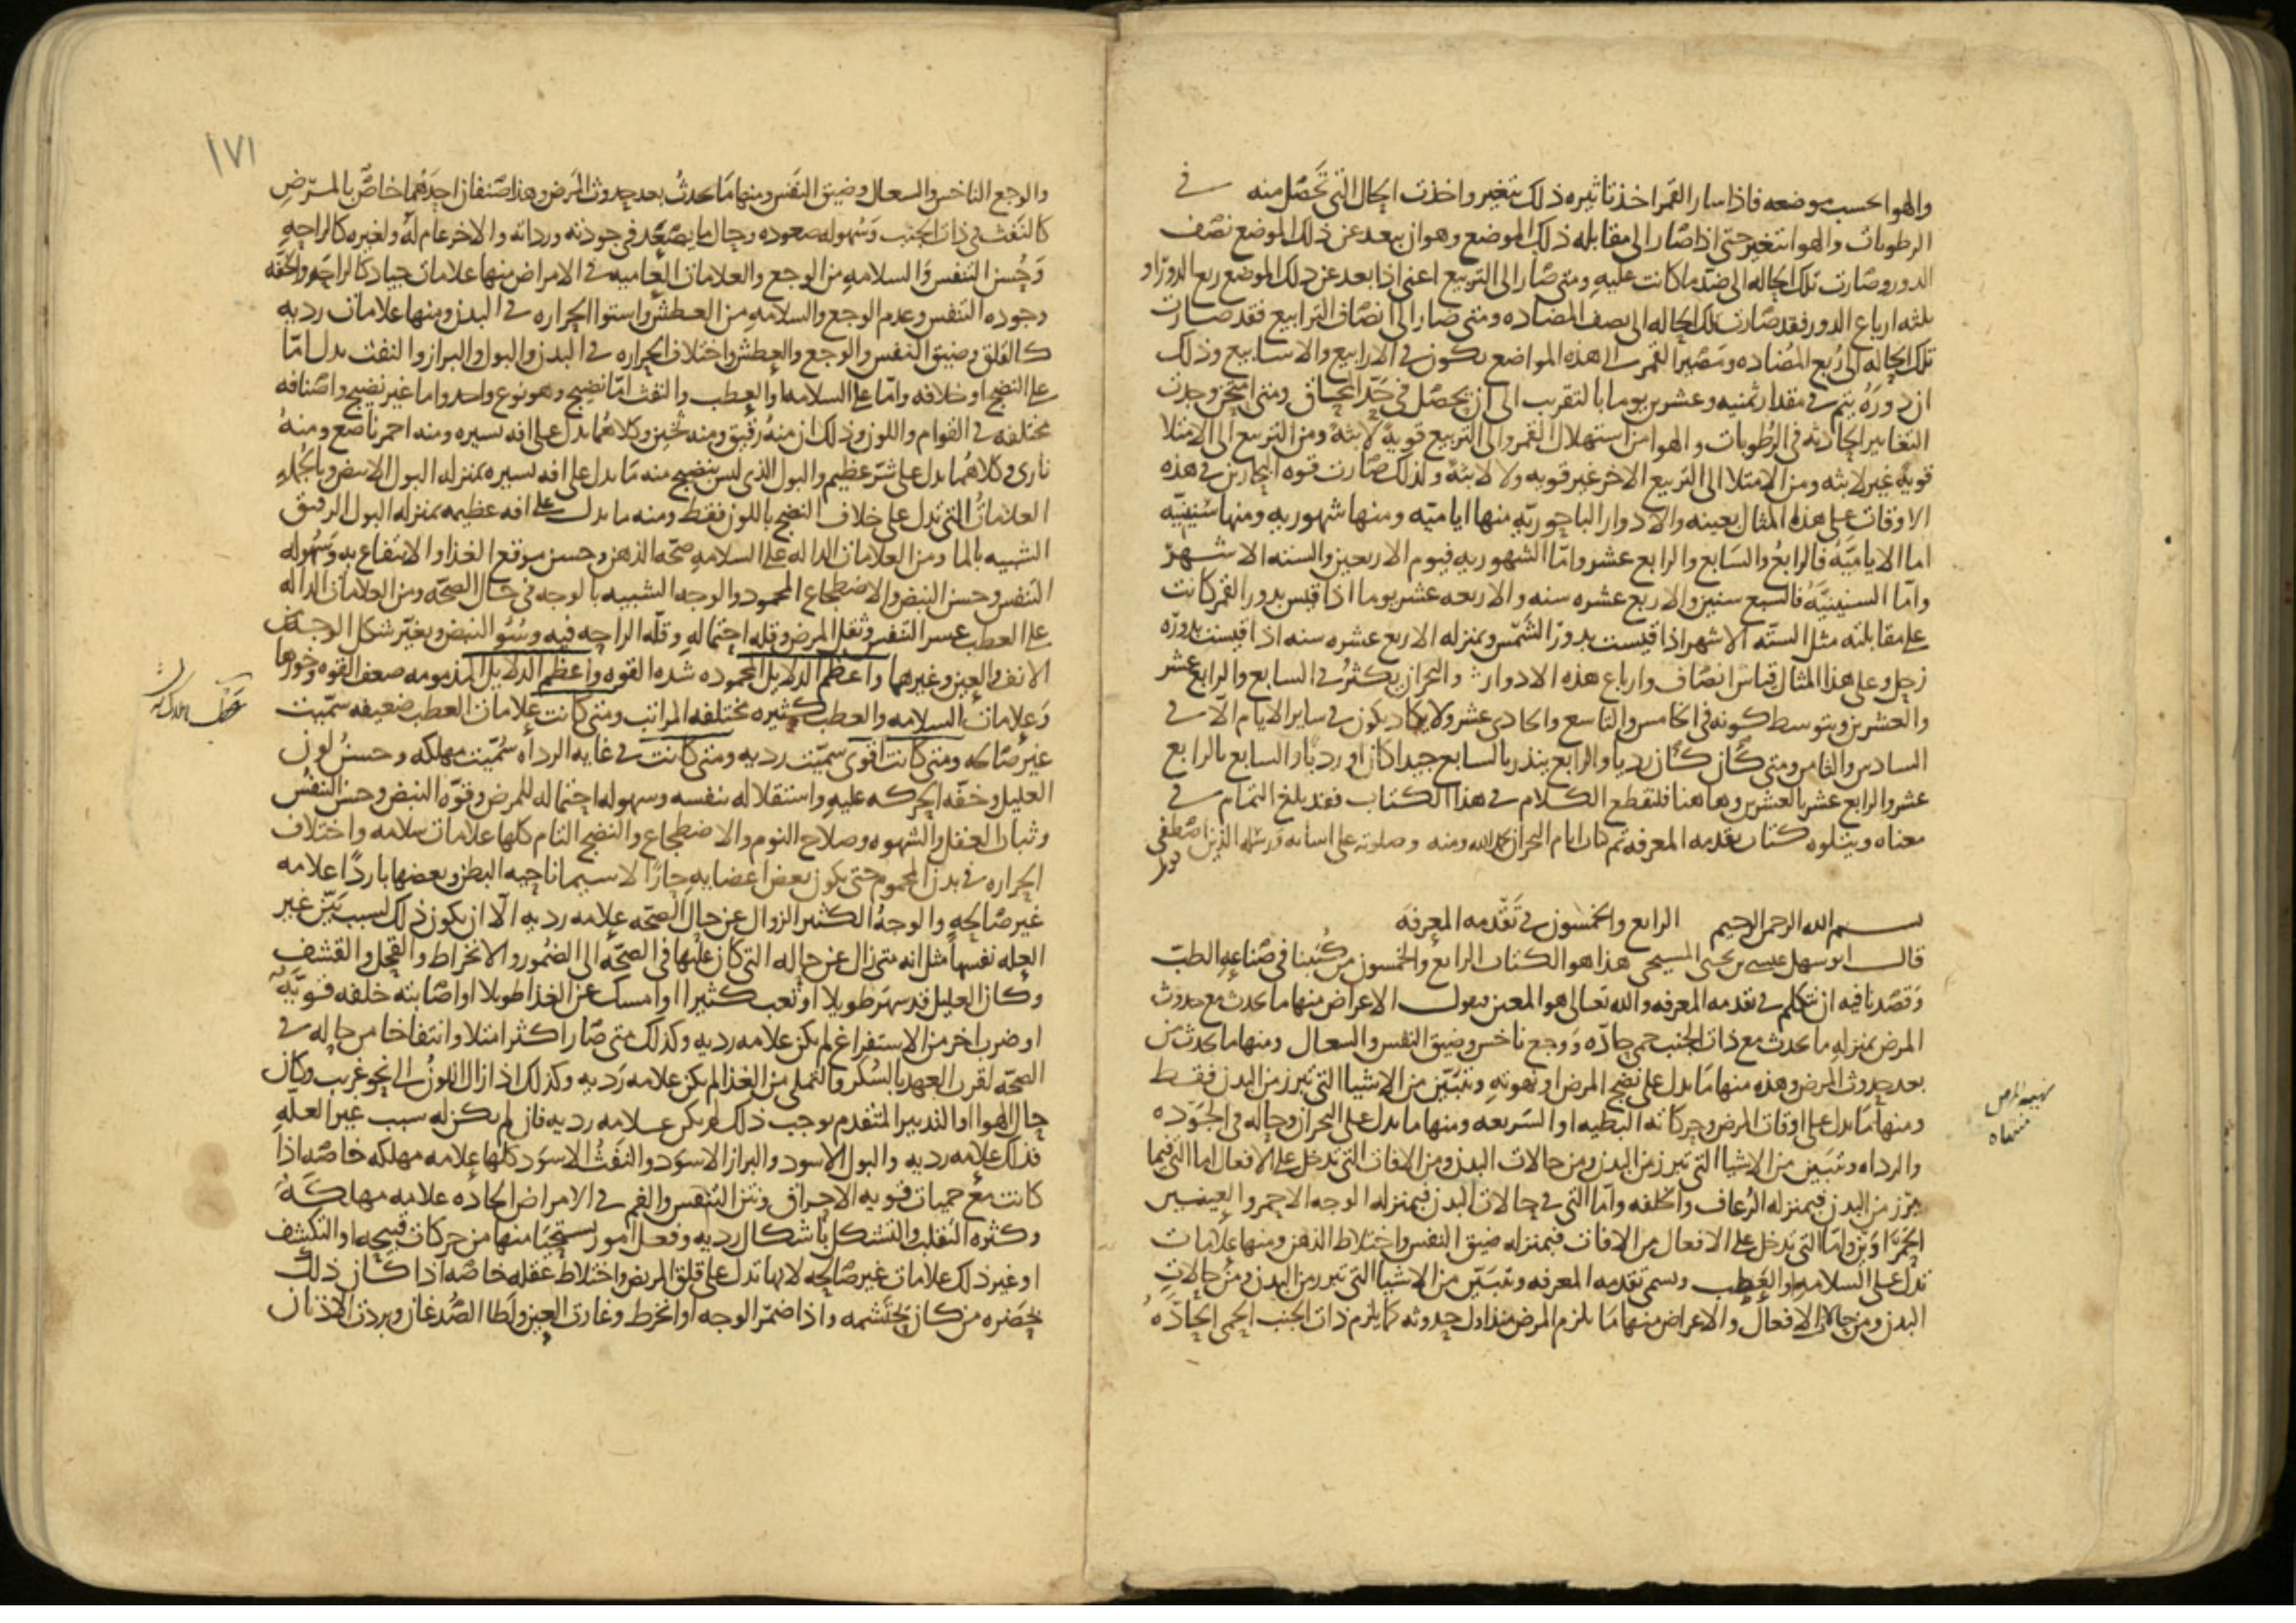 والهوا بحسب موضعه فاذا سار القمر اخذ تاثيره ذلك يتغير واخذت الحال التي تحصل منه في
الرطوبات والهوا تتغير حتى اذا صار الى مقابله ذلك الموضع وهو ان يبعد عن ذلك الموضع نصف
الدور صارت تلك الحاله الى ضد ما كانت عليه ومتى صار الى التربيع اعنى اذا بعد عن ذلك الموضع ربع الدور او
ثلثه ارباع الدور فقد صارت تلك الحاله الى نصف المضاده ومتى صار الى انصاف الترابيع فقد صارت
تلك الحاله الى ربع المضاده ومصير القمر الى هذه المواضع يكون في الارابيع والاسابيع وذلك
ان دوره يتم في مقدار ثمنيه وعشرين يوما بالتقريب الى ان يحصل في حد المحاق ومتى امتحن وجدت
التغايير الحادثه في الرطوبات والهوا من استهلال القمر والى التربيع قويه لابثه ومن التربيع الى الامتلا
قويه غير لابثه ومن الامتلا الى التربيع الاخر غير قويه ولا لابثه ولذلك صارت قوه البحارين في هذه
الاوقات على هذا المثال بعينه والادوار الباحوريه منها اياميه ومنها شهوريه ومنها سنينيه
اما الاياميه فالرابع والسابع والرابع عشر واما الشهوريه فيوم الاربعين والسته الاشهر
واما السنينيه فالسبع سنين والاربع عشره سنه والاربعه عشر يوما اذا قيس بدور القمر كانت
على مقابلته مثل السته الاشهر اذا قيست بدور الشمس وبمنزله الاربع عشره سنه اذا قيست بدوره
زحل وعلى هذا المثال قياس انصاف وارباع هذه الادوار والبحران يكثر في السابع والرابع عشر
والعشرين ويتوسط كونه في الخامس والتاسع والحادى عشر ولا يكاد يكون في ساير الايام الا في
السادس والثامن ومتى كان كان رديا والرابع ينذر بالسابع جيدا كان او رديا والسابع بالرابع
عشر والرابع عشر بالعشرين وهاهنا فلنقطع الكلام في هذا الكتاب فقد بلغ التمام في
معناه ويتلوه كتاب تقدمه المعرفه تم كتاب ايام البحران بحمد الله ومنه وصلوته على انبيائه ورسله الذين اصطفى
بسم الله الرحمن الرحيم الرابع والخمسون في تقدمه المعرفه
قال ابو سهل عيسى بن يحيى المسيحى هذا هو الكتاب الرابع والخمسون من كتبنا في صناعه الطب
وقصدنا فيه ان نتكلم في تقدمه المعرفه والله تعالى هو المعين نقول الاعراض منها ما يحدث مع حدوث
المرض بمنزله ما يحدث مع ذات الجنب حمى حاده ووجع ناخس وضيق النفس والسعال ومنها ما يحدث من
بعد حدوث المرض وهذه منها ما يدل على نضج المرض او نهوته وتتبين من الاشيا التي تبرز من البدن فقط
ومنها ما يدل على اوقات المرض وحركاته البطيه او السريعه ومنها ما يدل على البحران وحاله في الجوده
والرداه وتتبين من الاشيا التي تبرز من البدن ومن حالات البدن ومن الافات التي تدخل على الافعال اما التي فيما
يبرز من البدن فبمنزله الرعاف والخلفه واما التي في حالات البدن فبمنزله الوجه الاحمر والعينين
الحمراوين واما التي تدخل على الافعال من الافات فبمنزله ضيق النفس واختلاط الذهن ومنها علامات
تدل على السلامه والعطب وتسمى تقدمه المعرفه وتتبين من الاشيا التي تبرز من البدن ومن حالات
البدن ومن حالات الافعال والاعراض منها ما يلزم المرض منذ اول حدوثه كما يلزم ذات الجنب الحمى الحاده
١٧١
والوجع الناخس والسعال وضيق النفس ومنها ما يحدث بعد حدوث المرض وهذا صنفان احدهما خاص بالمرض
كالنفث في ذات الجنب وسهوله صعوده وحال ما يصعد في جودته ورداته والاخر عام له ولغيره كالراحه
وحسن التنفس والسلامه من الوجع والعلامات العاميه في الامراض منها علامات جياد كالراحه والخفه
وجوده التنفس وعدم الوجع والسلامه من العطش واستوا الحراره في البدن ومنها علامات رديه
كالقلق وضيق النفس والوجع والعطش واختلاف الحراره في البدن والبول والبراز والنفث يدل اما
على النضج او خلافه واما على السلامه او العطب والنفث اما نضيج وهو نوع واحد واما غير نضيج واصنافه
مختلفه في القوام واللون وذلك ان منه رقيق ومنه ثخين وكلاهما يدل على افه يسيره ومنه احمر ناصع ومنه
نارى وكلاهما يدل على شر عظيم والبول الذى ليس بنضيج منه ما يدل على افه يسيره بمنزله البول الابيض وبالجمله
العلامات التي تدل على خلاف النضج باللون فقط ومنه ما يدل على افه عظيمه بمنزله البول الرقيق
الشبيه بالما ومن العلامات الداله على السلامه صحه الذهن وحسن موقع الغذا والانتفاع به وسهوله
التنفس وحسن النبض والاضطجاع المحمود والوجه الشبيه بالوجه في حال الصحه ومن العلامات الداله
على العطب عسر التنفس وثقل المرض وقله احتماله وقله الراحه فيه وسو النبض وتغير شكل الوجه في
الانف والعين وغيرهما واعظم الدلايل المحموده شده القوه واعظم الدلايل المذمومه ضعف القوه وخورها
وعلامات السلامه والعطب كثيره مختلفه المراتب ومتى كانت علامات العطب ضعيفه سميت
غير صالحه ومتى كانت اقوى سميت رديه ومتى كانت في غايه الرداه سميت مهلكه وحسن لون
العليل وخفه الحركه عليه واستقلاله بنفسه وسهوله احتماله للمرض وقوه النبض وحسن التنفس
وثبات العقل والشهوه وصلاح النوم والاضطجاع والنضج التام كلها علامات سلامه واختلاف
الحراره في بدن المحموم حتى يكون بعض اعضايه حارا لا سيما ناحيه البطن وبعضها باردا علامه
غير صالحه والوجه الكثير الزوال عن حال الصحه علامه رديه الا ان يكون ذلك لسبب بين غير
العله نفسها مثل انه متى زال عن حاله التي كان عليها في الصحه الى الضمور والانخراط والقحل والقشف
وكان العليل قد سهر طويلا او تعب كثيرا او امسك عن الغذا طويلا او اصابته خلفه قويه
او ضرب اخر من الاستفراغ لم يكن علامه رديه وكذلك متى صار اكثر امتلا وانتفاخا من حاله في
الصحه لقرب العهد بالسكر والتملى من الغذا لم يكن علامه رديه وكذلك اذا زال اللون الى نحو غريب وكان
حال الهوا او التدبير المتقدم يوجب ذلك لم يكن علامه رديه فان لم يكن له سبب غير العله
فذلك علامه رديه والبول الاسود والبراز الاسود والنفث الاسود كلها علامه مهلكه خاصه اذا
كانت مع حميات قويه الاحراق ونتن النفس والفم في الامراض الحاده علامه مهلكه
وكثره التقلب والتشكل باشكال رديه وفعل امور يستحيا منها من حركات قبيحه او التكشف
او غير ذلك علامات غير صالحه لانها تدل على قلق المريض واختلاط عقله خاصه اذا كان ذلك
بحضره من كان يحتشمه واذا ضمر الوجه او انخرط وغارت العين ولطا الصدغان وبردت الاذنان